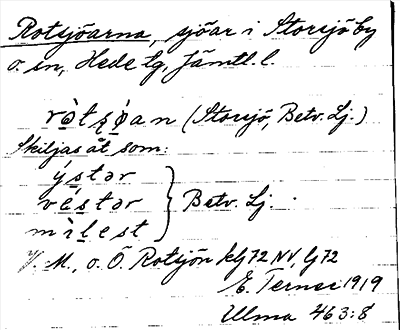 Rotsjöarna, sjöar i Storsjö by
o. sn, Hede tg, Jämtl. l.
(Storsjö, Betv. Lj.)
Skiljas åt som:
ýstər
véstər } Betv. Lj.
mìlest
Y. M., o. Ö. Rotsjön kfj 72 NV, Gj 72
E. Terner 1919
Ulma 463:8